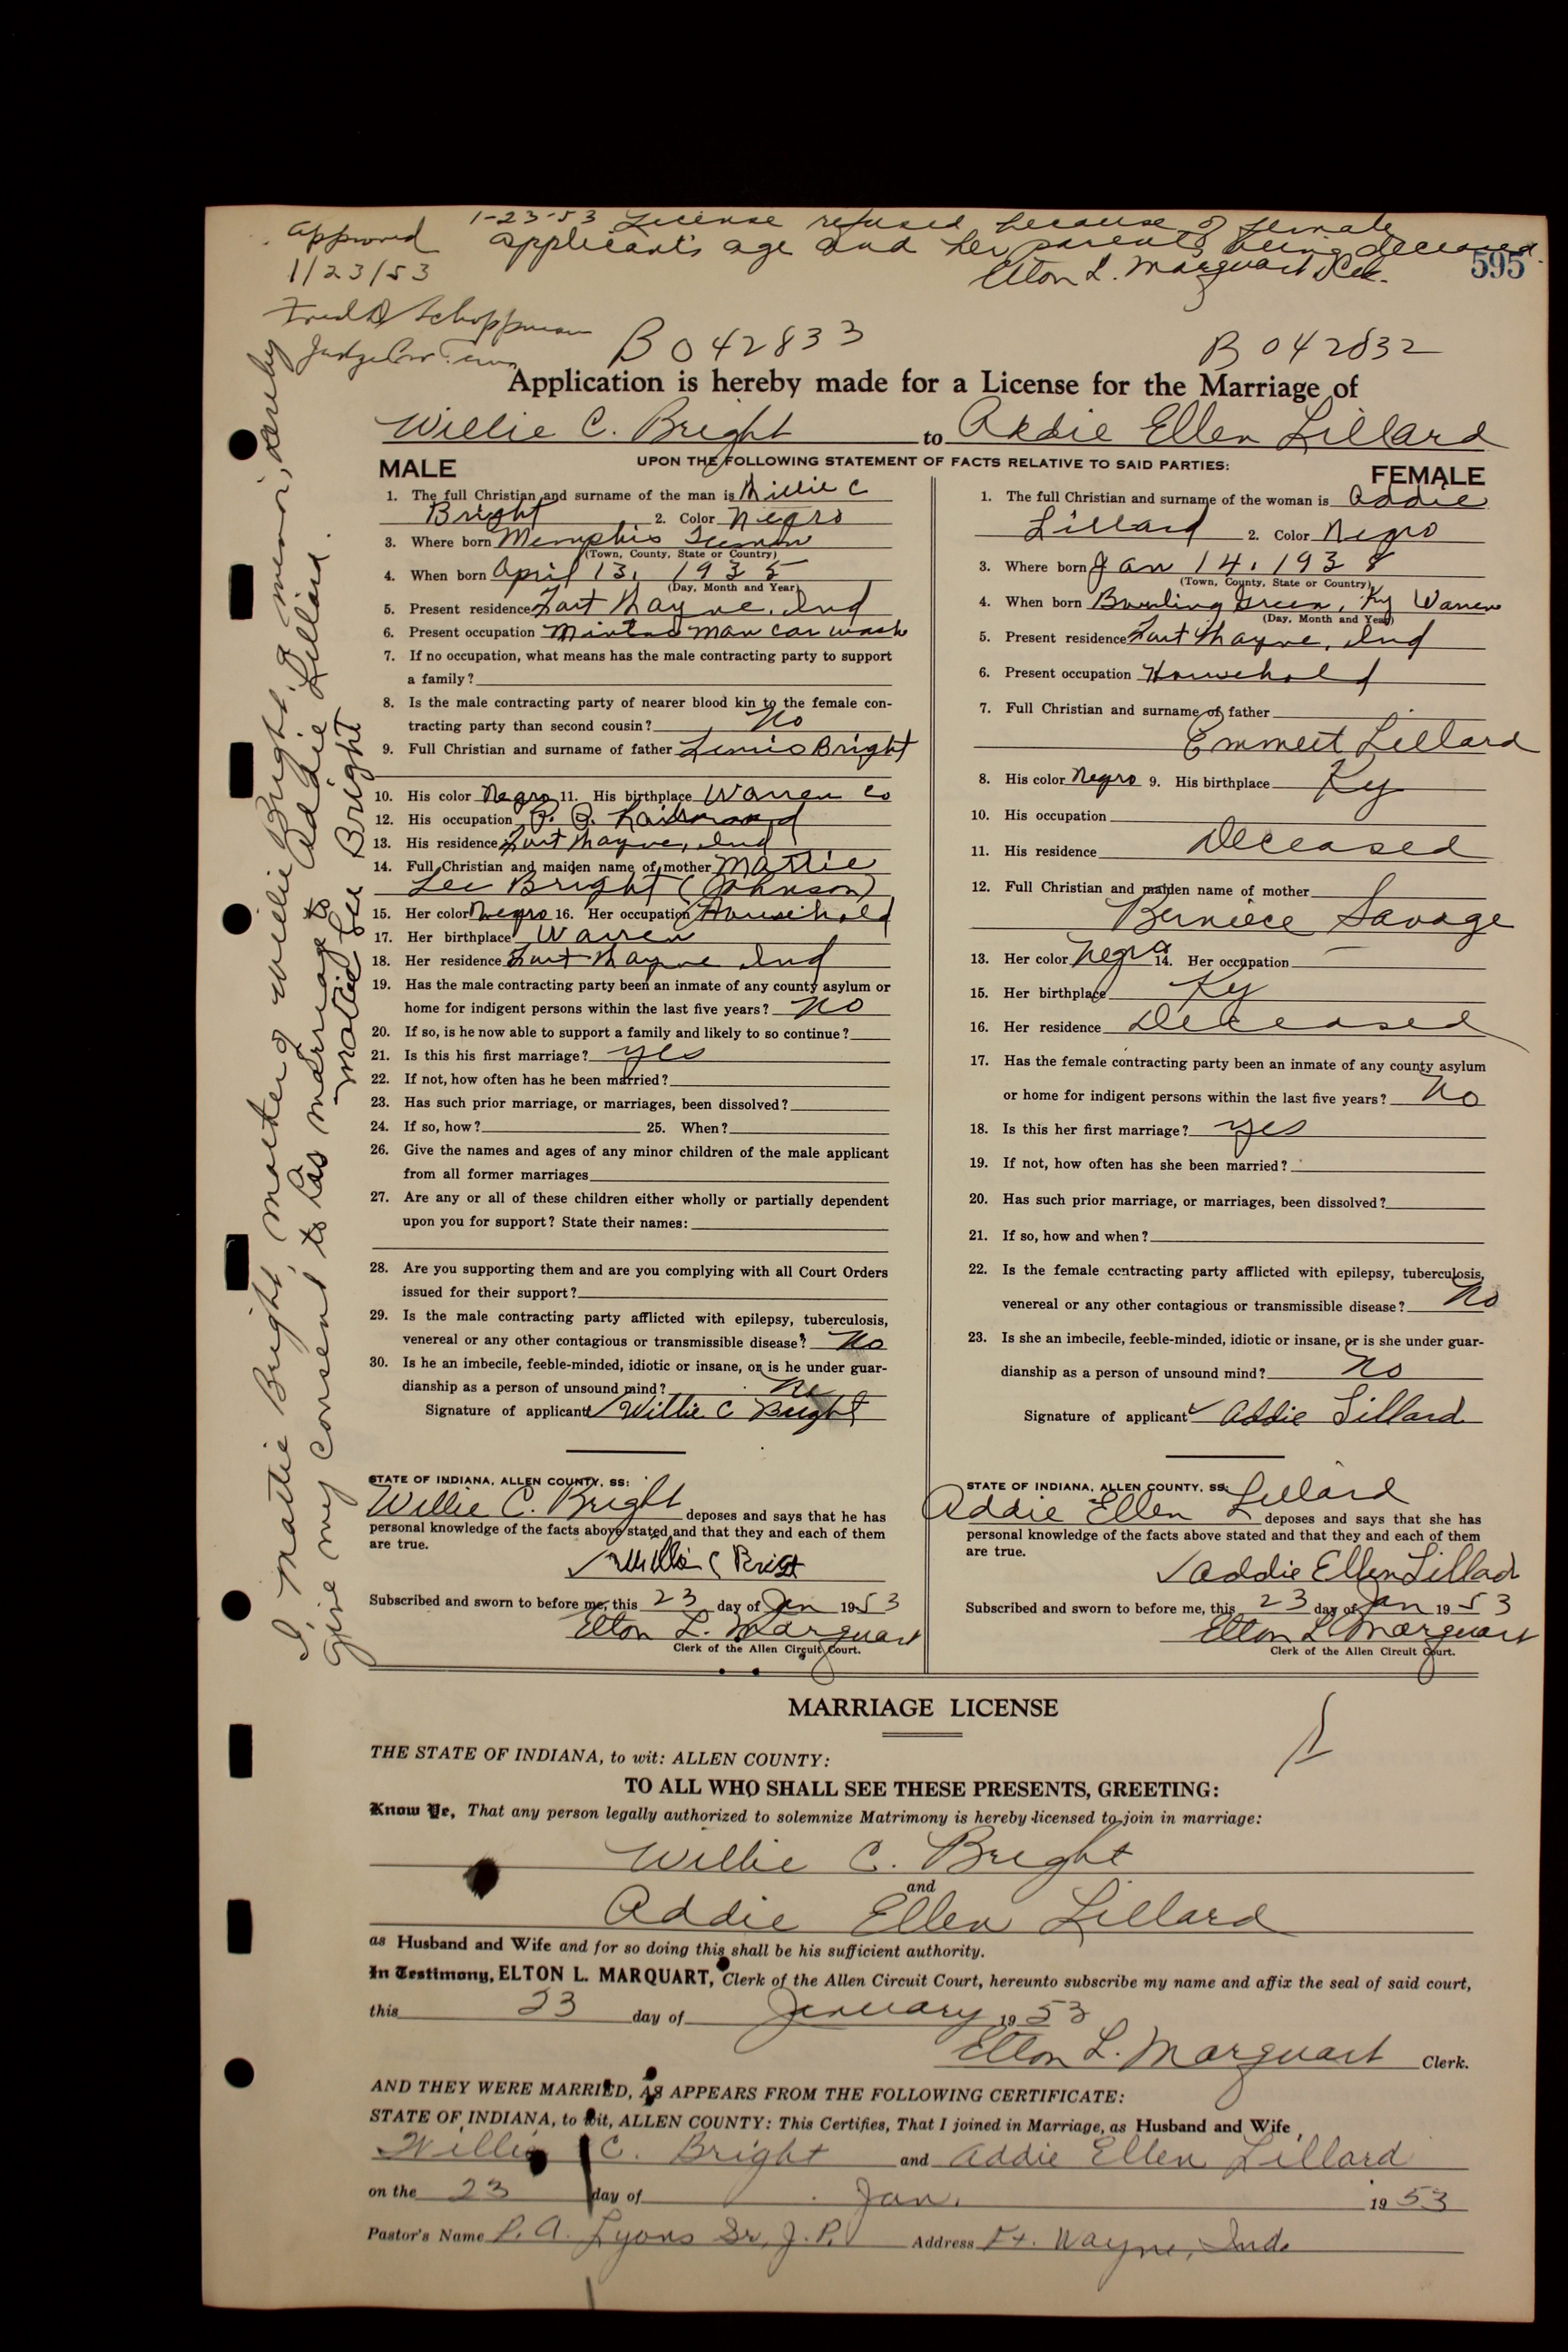 1-23-53 License refused because of female
applicant's age and her parents being deceased.
Elton L. Marquart Clk.
595
approved
1/23/53
Fred D Schoppman
Judge Pro Tem
B042833
B042832
Application is hereby made for a License for the Marriage of
Willie C. Bright to Addie Ellen Lillard
UPON THE FOLLOWING STATEMENT OF FACTS RELATIVE TO SAID PARTIES:
MALE
1. The full Christian and surname of the man is Willie C
Bright 2. Color Negro
3. Where born Memphis
(Town, County, State or Country)
4. When born April 13, 1935
(Day, Month and Year)
5. Present residence Fort Wayne, Ind
6. Present occupation man car wash
7. If no occupation, what means has the male contracting party to support
a family?
8. Is the male contracting party of nearer blood kin to the female con-
tracting party than second cousin? No
9. Full Christian and surname of father Bright
10. His color Negro 11. His birthplace Warren Co
12. His occupation Railroad
13. His residence Fort Wayne, Ind
14. Full Christian and maiden name of mother Mattie
Lee Bright (Johnson)
15. Her color Negro 16. Her occupation Household
17. Her birthplace Warren
18. Her residence Fort Wayne Ind
19. Has the male contracting party been an inmate of any county asylum or
home for indigent persons within the last five years? No
20. If so, is he now able to support a family and likely to so continue?
21. Is this his first marriage? yes
22. If not, how often has he been married?
23. Has such prior marriage, or marriages, been dissolved?
24. If so, how? 25. When?
26. Give the names and ages of any minor children of the male applicant
from all former marriages
27. Are any or all of these children either wholly or partially dependent
upon you for support? State their names:
28. Are you supporting them and are you complying with all Court Orders
issued for their support?
29. Is the male contracting party afflicted with epilepsy, tuberculosis,
venereal or any other contagious or transmissible disease? No
30. Is he an imbecile, feeble-minded, idiotic or insane, or is he under guar-
dianship as a person of unsound mind? No
Signature of applicant Willie C Bright
STATE OF INDIANA, ALLEN COUNTY, SS:
Willie C. Bright deposes and says that he has
personal knowledge of the facts above stated and that they and each of them
are true.
Willie C Bright
Subscribed and sworn to before me, this 23 day of Jan 1953
Elton L. Marquart
Clerk of the Allen Circuit Court.
FEMALE
1. The full Christian and surname of the woman is Addie
Lillard 2. Color Negro
3. Where born Jan 14, 1938
(Town, County, State or Country)
4. When born Bowling Green, Ky Warren
(Day, Month and Year)
5. Present residence Fort Wayne, Ind
6. Present occupation Household
7. Full Christian and surname of father
Emmett Lillard
8. His color Negro 9. His birthplace Ky
10. His occupation
11. His residence Deceased
12. Full Christian and maiden name of mother
Berniece Savage
13. Her color Negro 14. Her occupation
15. Her birthplace Ky
16. Her residence Deceased
17. Has the female contracting party been an inmate of any county asylum
or home for indigent persons within the last five years? No
18. Is this her first marriage? yes
19. If not, how often has she been married?
20. Has such prior marriage, or marriages, been dissolved?
21. If so, how and when?
22. Is the female contracting party afflicted with epilepsy, tuberculosis,
venereal or any other contagious or transmissible disease? No
23. Is she an imbecile, feeble-minded, idiotic or insane, or is she under guar-
dianship as a person of unsound mind? No
Signature of applicant Addie Lillard
STATE OF INDIANA, ALLEN COUNTY, SS:
Addie Ellen Lillard deposes and says that she has
personal knowledge of the facts above stated and that they and each of them
are true.
Addie Ellen Lillard
Subscribed and sworn to before me, this 23 day of Jan 1953
Elton L. Marquart
Clerk of the Allen Circuit Court.
I, Mattie Bright, mother of Willie Bright, a minor, hereby
give my consent to his marriage to Addie Lillard.
Mattie Lee Bright
MARRIAGE LICENSE
THE STATE OF INDIANA, to wit: ALLEN COUNTY:
TO ALL WHO SHALL SEE THESE PRESENTS, GREETING:
Know Ye, That any person legally authorized to solemnize Matrimony is hereby licensed to join in marriage:
Willie C. Bright
and
Addie Ellen Lillard
as Husband and Wife and for so doing this shall be his sufficient authority.
In Testimony, ELTON L. MARQUART, Clerk of the Allen Circuit Court, hereunto subscribe my name and affix the seal of said court,
this 23 day of January 1953
Elton L. Marquart Clerk.
AND THEY WERE MARRIED, AS APPEARS FROM THE FOLLOWING CERTIFICATE:
STATE OF INDIANA, to wit, ALLEN COUNTY: This Certifies, That I joined in Marriage, as Husband and Wife,
Willie C. Bright and Addie Ellen Lillard
on the 23 day of Jan. 1953
Pastor's Name P. A. Lyons Sr, J.P. Address Ft. Wayne, Ind.